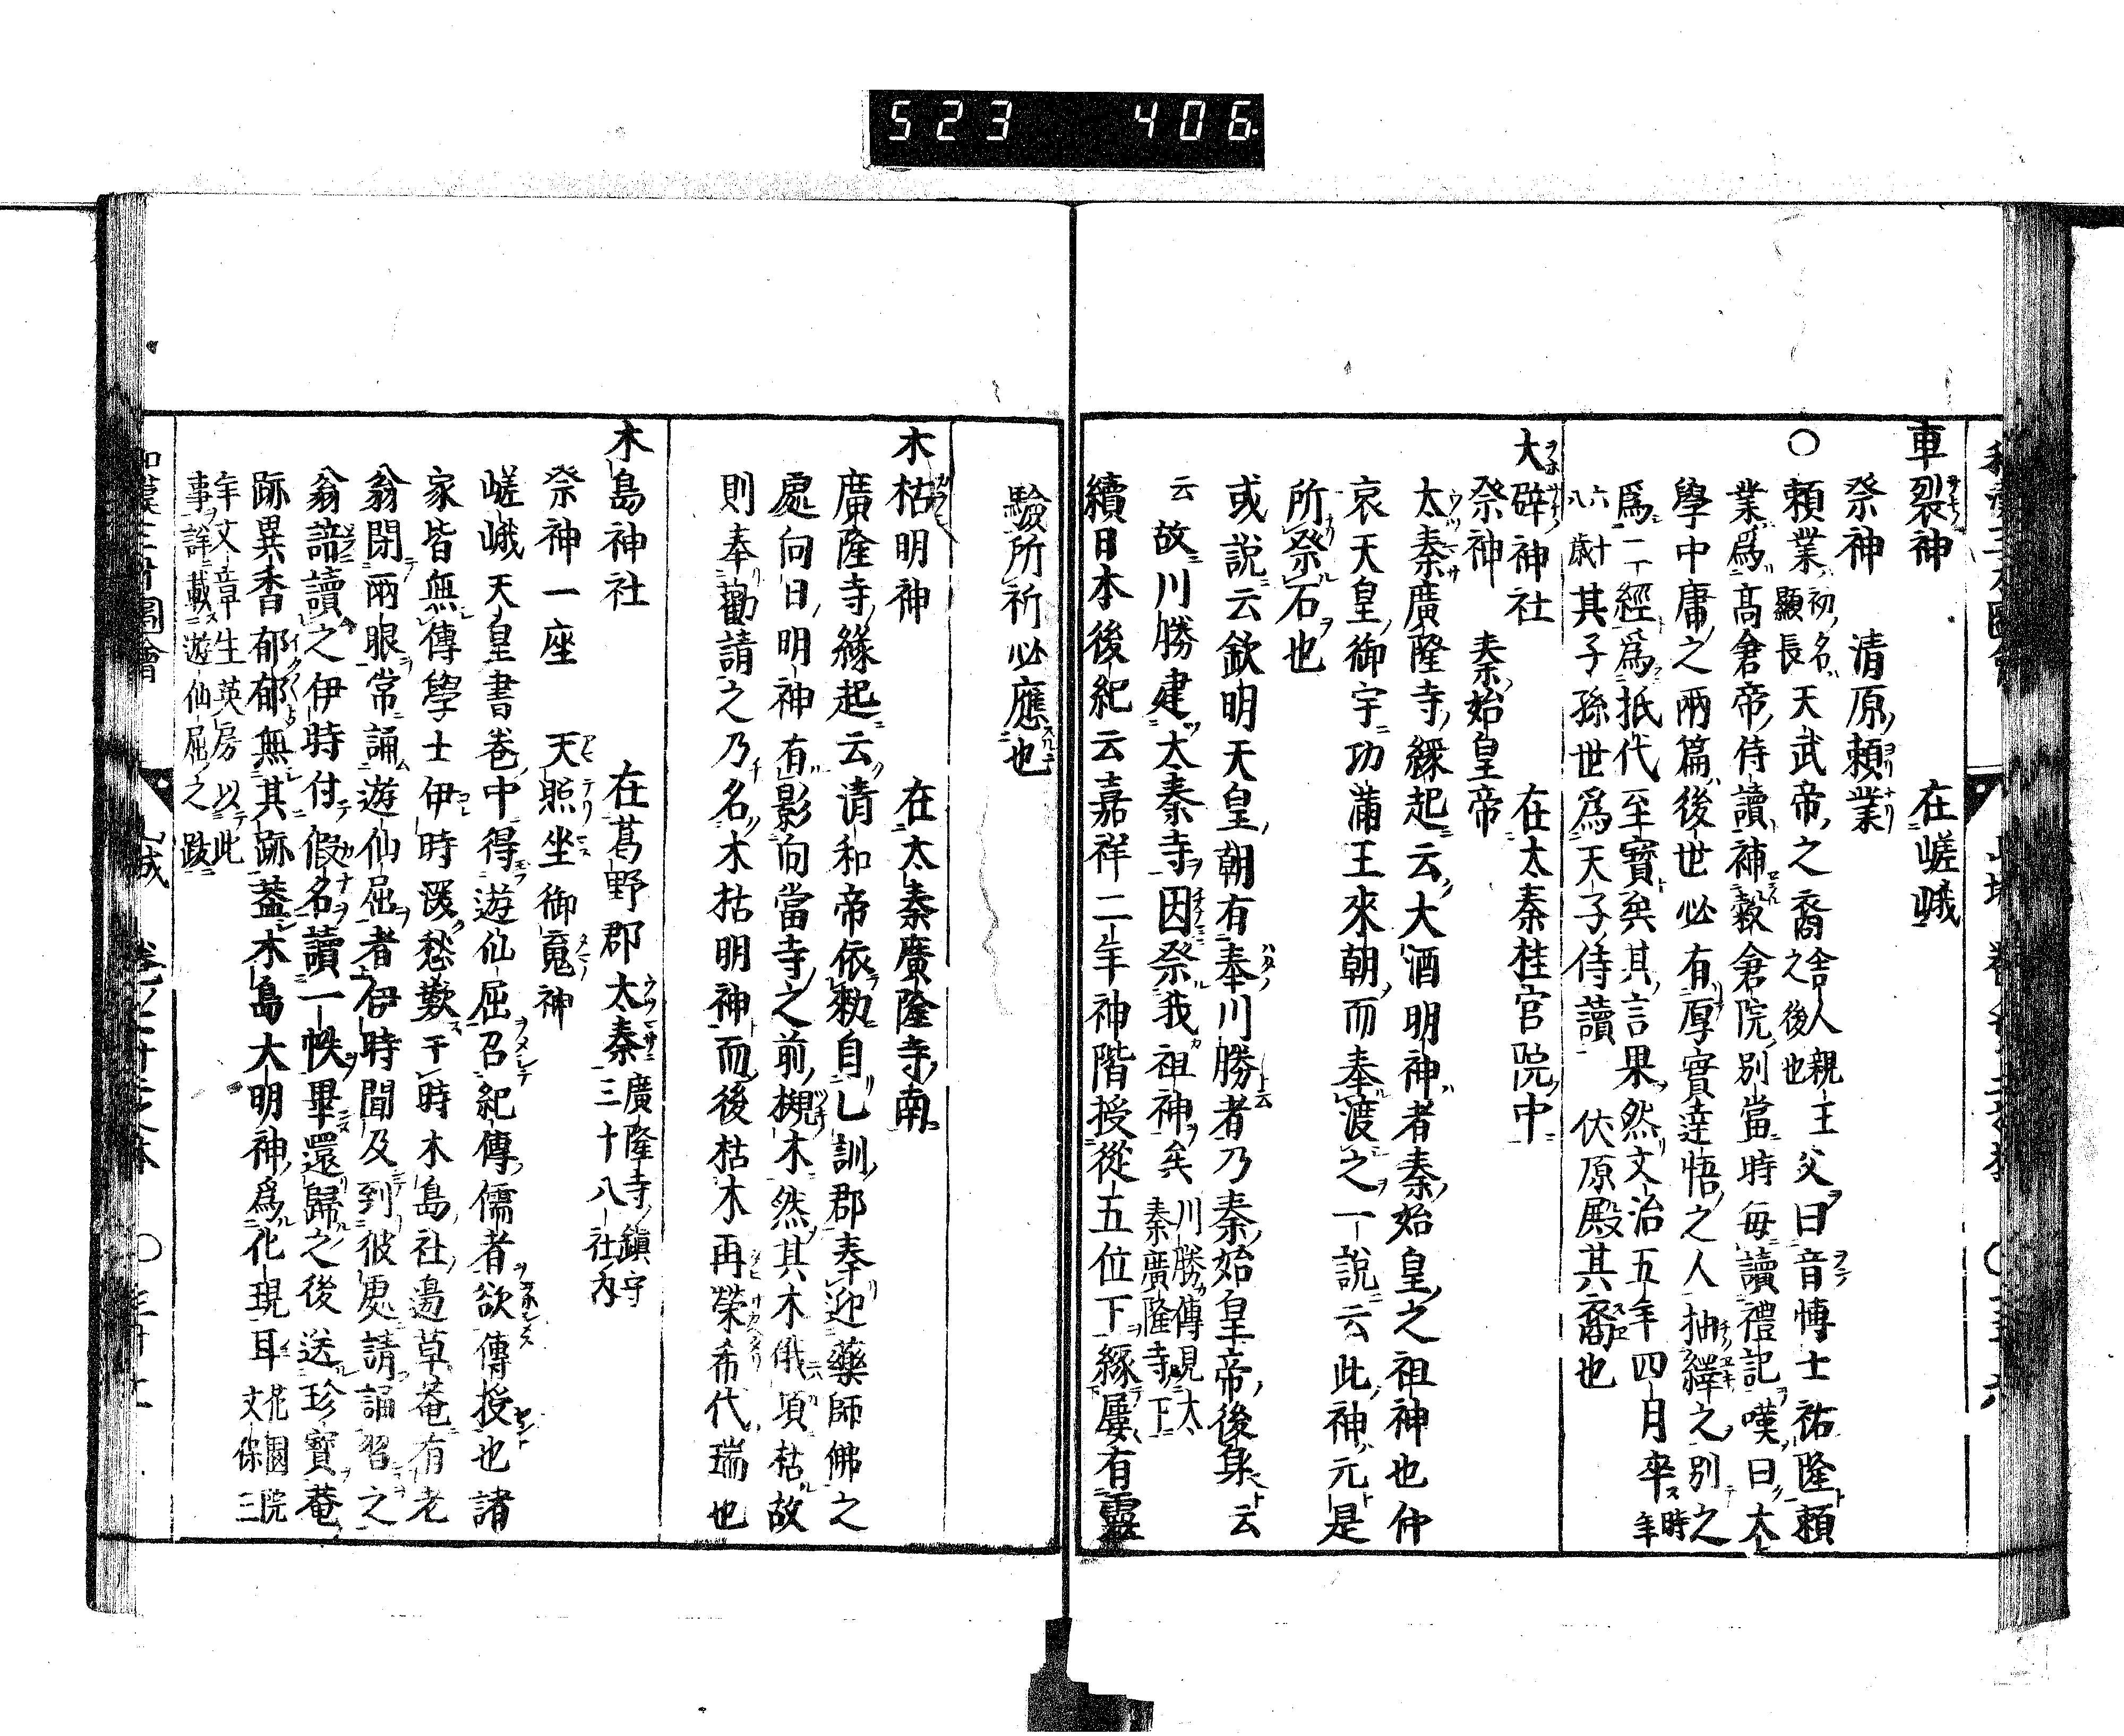 523 406
車裂神 在嵯峨
祭神 清原賴業
○賴業初名顯長天武帝之裔舍人親王之後也父曰音愽士祐隆賴
業爲髙倉帝侍讀補穀倉院別當時每讀禮記嘆曰太
學中庸之兩篇後世必有厚實達悟之人抽繹之別之
爲二經爲抵代至寶矣其言果然文治五年四月卒時年
六十八歲其子孫世爲天子侍讀 伏原殿其裔也
大辟神社 在太秦桂宮院中
祭神 秦始皇帝
太秦廣隆寺緣起云大酒明神者秦始皇之祖神也仲
哀天皇御宇功滿王來朝而奉渡之一說云此神元是
所祭石也
或說云欽明天皇朝有奉川勝者乃秦始皇帝後身云
云故川勝建太秦寺因祭我祖神矣川勝傳見太秦廣隆寺下
續日本後紀云嘉祥二年神階授從五位下緣屢有靈
驗所祈必應也
木枯明神 在太秦廣隆寺南
廣隆寺緣起云清和帝依勑自乙訓郡奉迎藥師佛之
處向日明神有影向當寺之前槻木然其木俄頃枯故
則奉勸請之乃名木枯明神而後枯木再榮希代瑞也
木島神社 在葛野郡太秦廣隆寺鎭守三十八社內
祭神一座 天照坐御魂神
嵯峨天皇書卷中得遊仙屈召紀傳儒者欲傳授也諸
家皆無傳學士伊時深愁歎于時木島社邊草菴有老
翁閉兩眼常誦遊仙屈者伊時聞及到彼處請誦習之
翁諳讀之伊時付假名讀一帙畢還歸之後送珍寶菴
跡異香郁郁無其跡蓋木島大明神爲化現耳花園院文保三
年文章生英房以此事詳載遊仙屈之跋